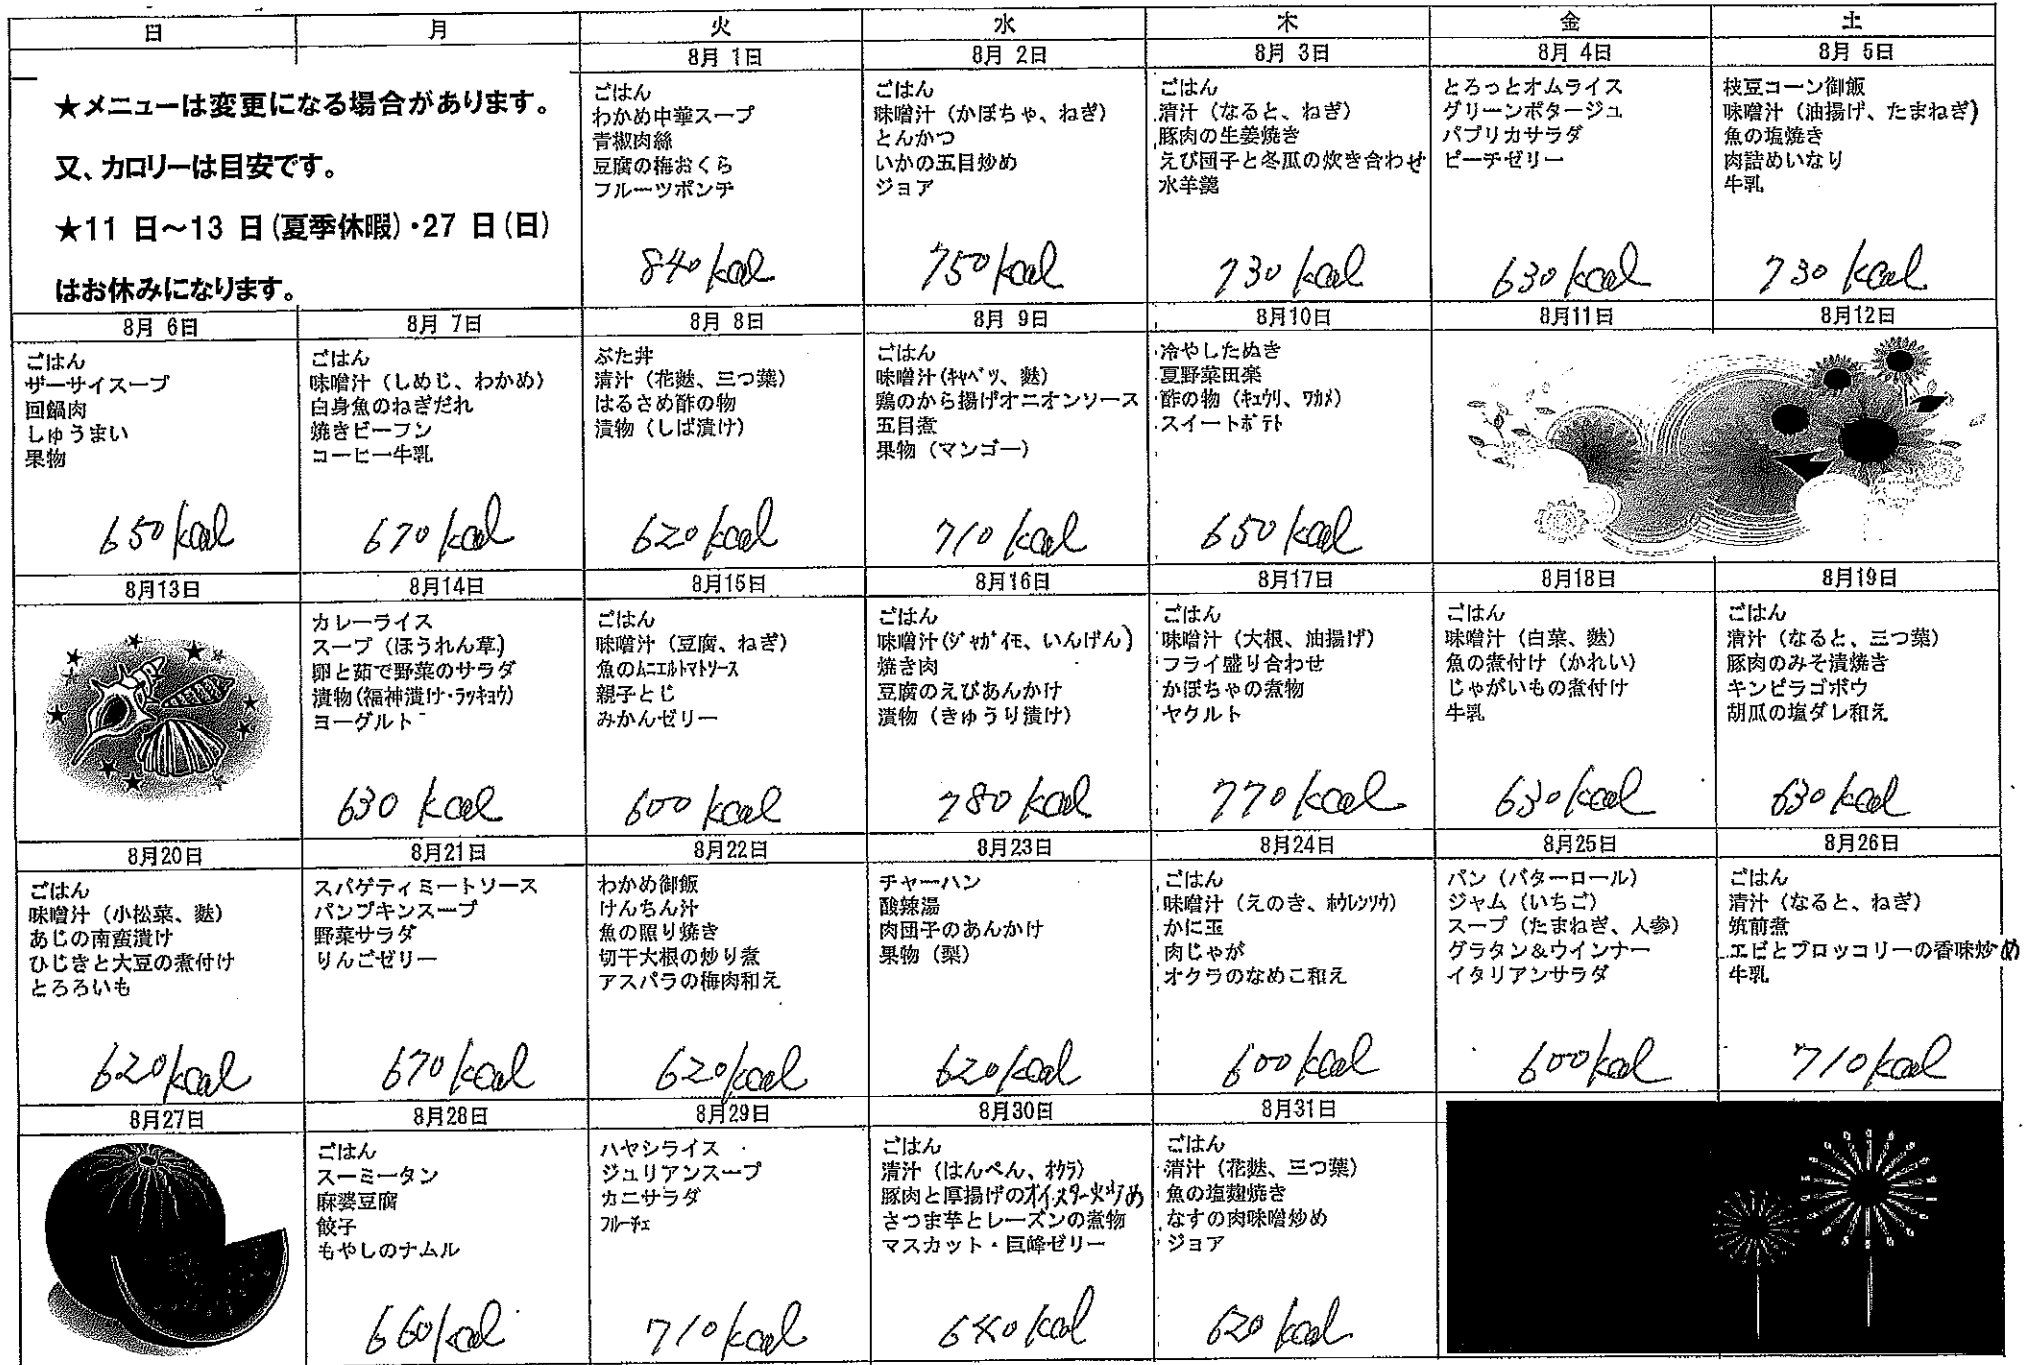 日 月 火 水 木 金 土
8月 1日 8月 2日 8月 3日 8月 4日 8月 5日
★メニューは変更になる場合があります。
又、カロリーは目安です。
★11 日～13 日(夏季休暇)・27 日(日)
はお休みになります。
ごはん
わかめ中華スープ
青椒肉絲
豆腐の梅おくら
フルーツポンチ
840kcal
ごはん
味噌汁（かぼちゃ、ねぎ）
とんかつ
いかの五目炒め
ジョア
750kcal
ごはん
清汁（なると、ねぎ）
豚肉の生姜焼き
えび団子と冬瓜の炊き合わせ
水羊羹
730kcal
とろっとオムライス
グリーンポタージュ
パプリカサラダ
ピーチゼリー
630kcal
枝豆コーン御飯
味噌汁（油揚げ、たまねぎ）
魚の塩焼き
肉詰めいなり
牛乳
730kcal
8月 6日 8月 7日 8月 8日 8月 9日 8月10日 8月11日 8月12日
ごはん
ザーサイスープ
回鍋肉
しゅうまい
果物
650kcal
ごはん
味噌汁（しめじ、わかめ）
白身魚のねぎだれ
焼きビーフン
コーヒー牛乳
670kcal
ぶた丼
清汁（花麩、三つ葉）
はるさめ酢の物
漬物（しば漬け）
620kcal
ごはん
味噌汁(ｷｬﾍﾞﾂ、麩）
鶏のから揚げオニオンソース
五目煮
果物（マンゴー）
710kcal
冷やしたぬき
夏野菜田楽
酢の物（ｷｭｳﾘ、ﾜｶﾒ）
スイートﾎﾟﾃﾄ
650kcal
8月13日 8月14日 8月15日 8月16日 8月17日 8月18日 8月19日
カレーライス
スープ（ほうれん草）
卵と茹で野菜のサラダ
漬物(福神漬け・ﾗｯｷｮｳ)
ヨーグルト
630kcal
ごはん
味噌汁（豆腐、ねぎ）
魚のﾑﾆｴﾙﾄﾏﾄｿｰｽ
親子とじ
みかんゼリー
600kcal
ごはん
味噌汁(ｼﾞｬｶﾞｲﾓ、いんげん）
焼き肉
豆腐のえびあんかけ
漬物（きゅうり漬け）
780kcal
ごはん
味噌汁（大根、油揚げ）
フライ盛り合わせ
かぼちゃの煮物
ヤクルト
770kcal
ごはん
味噌汁（白菜、麩）
魚の煮付け（かれい）
じゃがいもの煮付け
牛乳
630kcal
ごはん
清汁（なると、三つ葉）
豚肉のみそ漬焼き
キンピラゴボウ
胡瓜の塩ダレ和え
630kcal
8月20日 8月21日 8月22日 8月23日 8月24日 8月25日 8月26日
ごはん
味噌汁（小松菜、麩）
あじの南蛮漬け
ひじきと大豆の煮付け
とろろいも
620kcal
スパゲティミートソース
パンプキンスープ
野菜サラダ
りんごゼリー
670kcal
わかめ御飯
けんちん汁
魚の照り焼き
切干大根の炒り煮
アスパラの梅肉和え
620kcal
チャーハン
酸辣湯
肉団子のあんかけ
果物（梨）
620kcal
ごはん
味噌汁（えのき、ﾎｳﾚﾝｿｳ）
かに玉
肉じゃが
オクラのなめこ和え
600kcal
パン（バターロール）
ジャム（いちご）
スープ（たまねぎ、人参）
グラタン＆ウインナー
イタリアンサラダ
600kcal
ごはん
清汁（なると、ねぎ）
筑前煮
エビとブロッコリーの香味炒め
牛乳
710kcal
8月27日 8月28日 8月29日 8月30日 8月31日
ごはん
スーミータン
麻婆豆腐
餃子
もやしのナムル
660kcal
ハヤシライス
ジュリアンスープ
カニサラダ
ﾌﾙｰﾁｪ
710kcal
ごはん
清汁（はんぺん、ｵｸﾗ）
豚肉と厚揚げのｵｲｽﾀｰ炒め
さつま芋とレーズンの煮物
マスカット・巨峰ゼリー
640kcal
ごはん
清汁（花麩、三つ葉）
魚の塩麹焼き
なすの肉味噌炒め
ジョア
620kcal